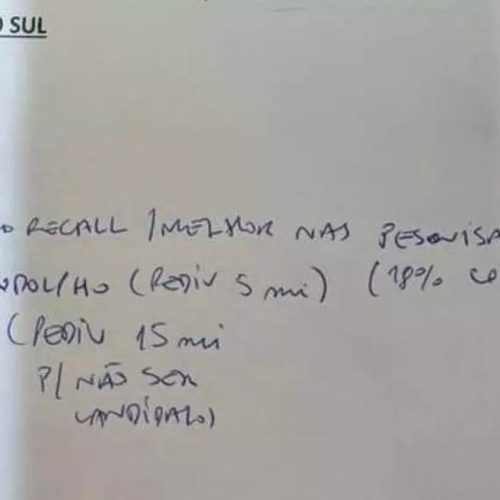 O SUL
RECALL / MELHOR NAS PESQUISA
(PEDIU 5 mi) (18% CO
(PEDIU 15 mi
P/ NÃO SER
CANDIDATO)